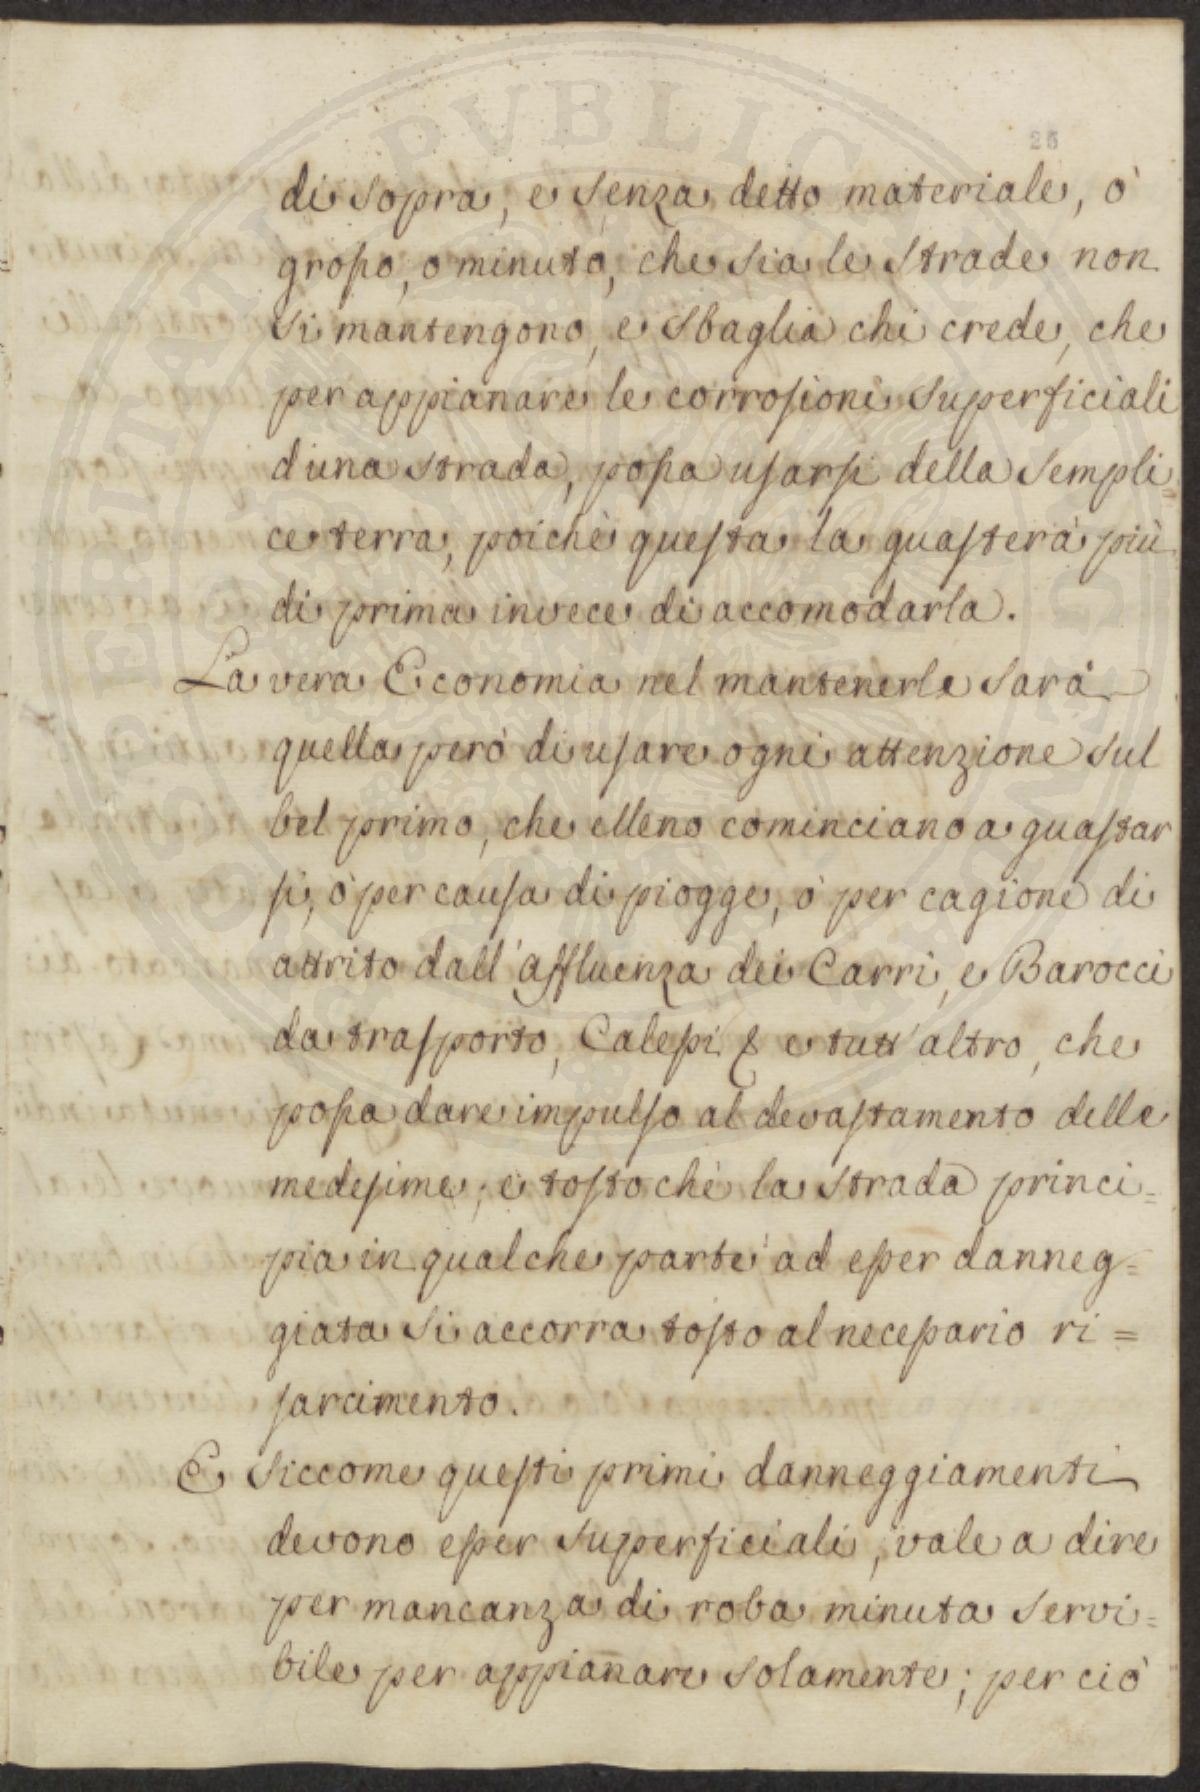 26
di sopra, e senza detto materiale, ò
grosso, o minuto, che sia le strade non
si mantengono, e sbaglia chi crede, che
per appianare le corrosioni superficiali
d'una strada, possa usarsi della sempli=
ce terra, poichè questa la guasterà più
di prima invece di accomodarla.
La vera Economia nel mantenerle sarà
quella però di usare ogni attenzione sul
bel primo, che elleno cominciano a guastar
si, ò per causa di piogge, ò per cagione di
attrito dall'affluenza dei Carri, e Barocci
da trasporto, Calessi & e tutt'altro, che
possa dare impulso al devastamento delle
medesime; e tosto chè la strada princi=
pia in qualche parte ad esser danneg=
giata si accorra tosto al necessario ri=
sarcimento.
E siccome questi primi danneggiamenti
devono esser superficiali, vale a dire
per mancanza di roba minuta servi=
bile per appianare solamente; per ciò